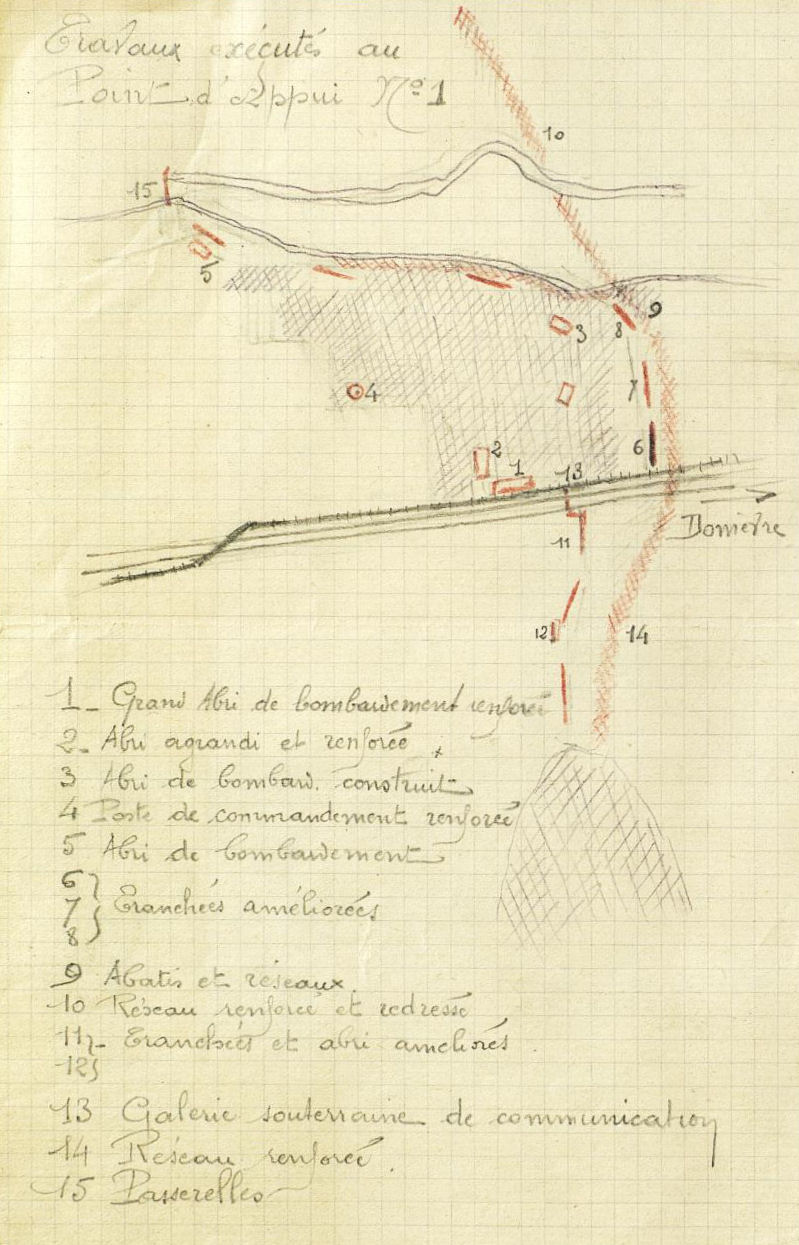 Travaux exécutés au
Point d'Appui Nº1
10
15
5
9
3
8
4
7
2
6
1
13
11
Domèvre
12
14
1_ Grand Abri de bombardement renforcé
2_ Abri agrandi et renforcé
3 Abri de bombard. construit
4 Poste de commandement renforcé
5 Abri de bombardement
6
7 Tranchées améliorées
8
9 Abatis et réseaux.
10 Réseau renforcé et redressé
11 Tranchées et abri améliorés.
12
13 Galerie souterraine de communication
14 Réseau renforcé.
15 Passerelles